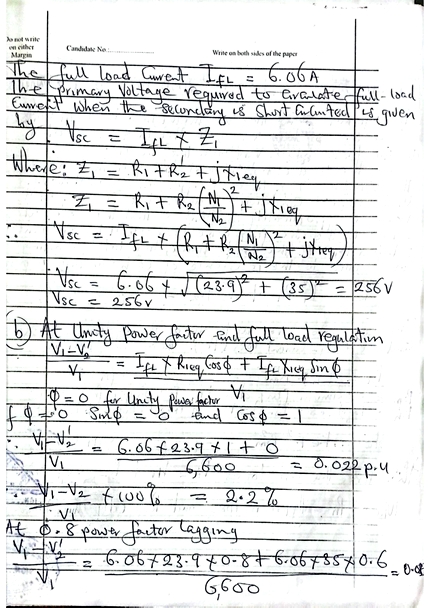 Do not write
on either
Margin
Candidate No
Write on both sides of the paper
The full load Current I_FL = 6.06A
The primary Voltage required to circulate full-load
Current when the secondary is Short Circuited is given
by V_sc = I_fL × Z_1
Where: Z_1 = R_1 + R_2' + jX_1eq
Z_1 = R_1 + R_2 (N_1/N_2)^2 + jX_1eq
∴ V_sc = I_fL × (R_1 + R_2 (N_1/N_2)^2 + jX_1eq)
V_sc = 6.06 × √((23.9)^2 + (35)^2) = 256V
V_sc = 256v
(b) At Unity power factor and full load regulation
(V_1-V_2')/V_1 = (I_fL × R_1eq Cosϕ + I_fL X_1eq Sinϕ)/V_1
ϕ = 0 for Unity power factor
f ϕ = 0 Sinϕ = 0 and Cosϕ = 1
∴ (V_1-V_2')/V_1 = (6.06 × 23.9 × 1 + 0)/6,600 = 0.022 p.u
∴ (V_1-V_2)/V_1 × 100% = 2.2%
At 0.8 power factor lagging
(V_1-V_2')/V_1 = (6.06 × 23.9 × 0.8 + 6.06 × 35 × 0.6)/6,600 =